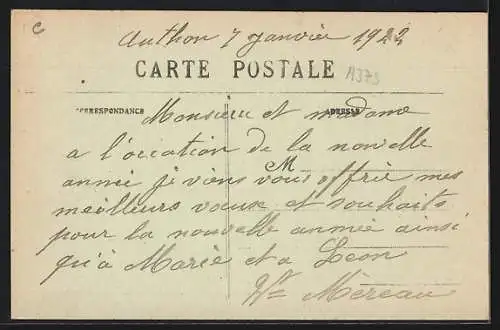 c
Authon 7 janvier 1922
A373
CARTE POSTALE
CORRESPONDANCE
ADRESSE
Monsieur et madame
a l'occation de la nouvelle
M
anné je viens vous offrir mes
meilleurs vœux et souhaits
pour la nouvelle année ainsi
qu'à Marie et a Leon
Vve Méreau